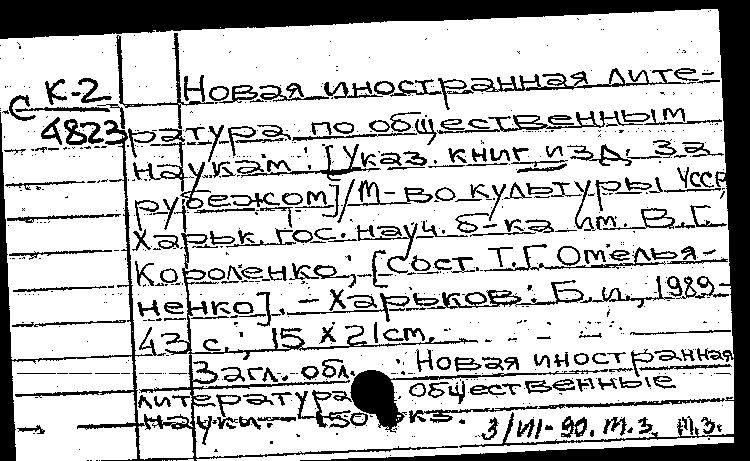 С К-2
4823
Новая иностранная лите-
ратура по общественным
наукам : [Указ. книг, изд. за
рубежом] / М-во культуры УССР,
Харьк. гос. науч. б-ка им. В.Г.
Короленко ; [Сост. Т.Г. Омелья-
ненко]. – Харьков : Б.и., 1989. –
43 с. ; 15 X 21 cm. –
Загл. обл. : Новая иностранная
литература общественные
науки. – 150 экз.
3/VII-90. М.З. М.З.